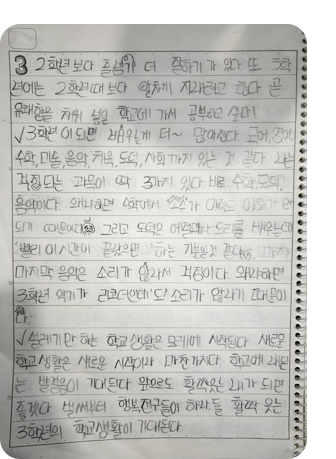 3 2학년보다 줄넘기 더 잘하기가 있다 또 3학
년에는 2학년때 보다 알차게 지내려고 한다 곧
유쾌함을 채워 넣은 학교에 가서 공부하고 싶다!
√3학년이 되면 배울게 더~ 많아진다 국어,영어
수학,미술,음악,체육,도덕,사회까지 있는 것 같다 나는
걱정되는 과목이 딱 3가지 있다 바로 수학,도덕,
음악이다 왜냐하면 수학에서 이해가 안
되기 때문이다 그리고 도덕은 어떨때나 도리를 배우는데
'빨리 이 시간이 끝났으면' 하는 기분일것 같다
마지막 음악은 소리가 않나서 걱정이다 왜냐하면
3학년 악기가 리코더인데 '도' 소리가 않나기 때문이
다
√설레기만 하는 학교생활은 모레에 시작된다 새로운
학교생활은 새로운 시작이나 마찬가지다 학교에 내딛
는 발걸음이 기대된다 앞으로도 활짝웃는 내가 되면
좋겠다 벌써부터 행복친구들이 하하,둘 활짝 웃는
3학년의 학교생활이 기대된다